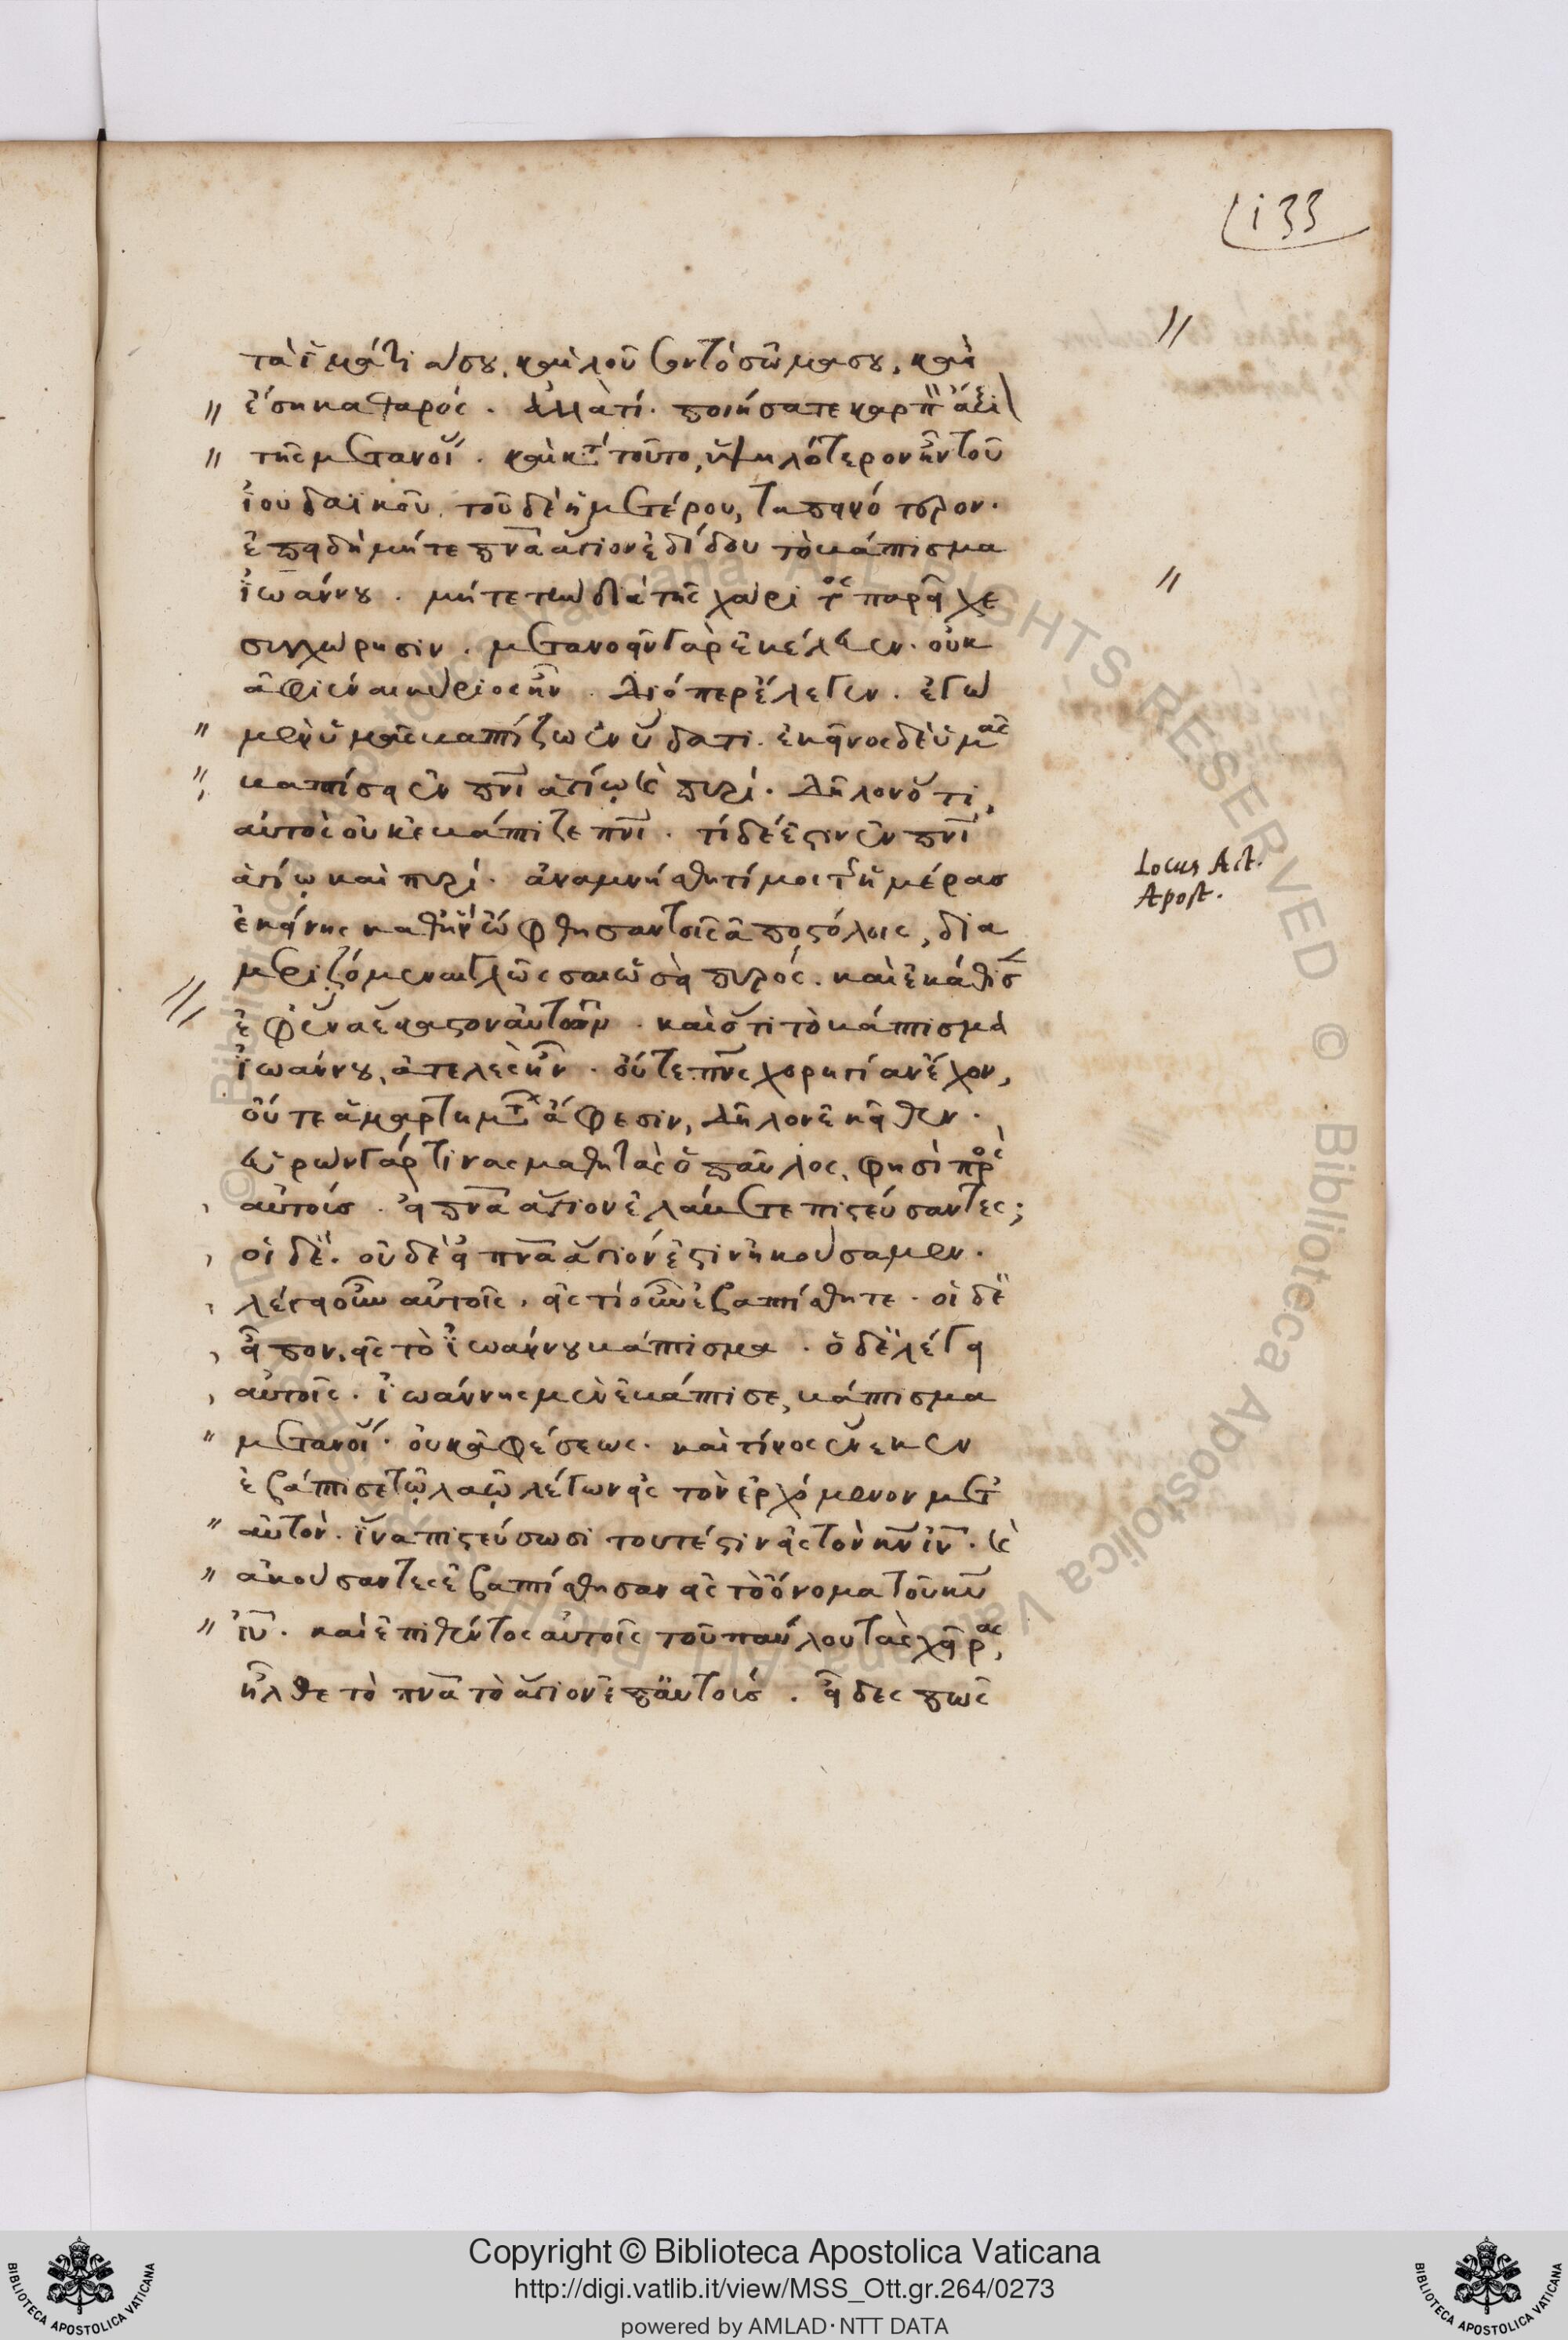 133
τὰ ἱμάτια σου, καὶ λοῦσον τὸ σῶμα σου, καὶ
ἔση καθαρός. ἀλλὰ τί. ποιήσατε καρπ ἀξί
τῆς μετανοί. καὶ κτ τοῦτο, ὑψηλότερον ἦν τοῦ
ἰουδαϊκοῦ. τοῦ δὲ ἡμετέρου, ταπεινότερον.
ἐπειδὴ μήτε πνᾶ ἅγιον ἐδίδου τὸ βάπτισμα
ἰωάννου. μήτε τὴν διὰ τῆς χάριτος παρεῖχε
συγχώρησιν. μετανοεῖν γὰρ ἐκέλευεν. οὐκ
ἀφιέναι κύριος ἦν. διόπερ ἔλεγεν. ἐγὼ
μὲν ὑμᾶς βαπτίζω ἐν ὕδατι. ἐκεῖνος δὲ ὑμᾶς
βαπτίσει ἐν πνι ἁγίω καὶ πυρί. δῆλον ὅτι,
αὐτὸς οὐκ ἐβάπτιζε πνι. τί δέ ἐστιν ἐν πνι
ἁγίω καὶ πυρί. ἀναμνήσθητί μοι τ ἡμέρας
ἐκείνης καθ' ἣν ὤφθησαν τοῖς ἀποστόλοις, δια
μεριζόμεναι γλῶσσαι ὡσεὶ πυρός. καὶ ἐκάθισ
ἐφ' ἕνα ἕκαστον αὐτῶν. καὶ ὅτι τὸ βάπτισμα
ἰωάννου, ἀτελὲς ἦν. οὔτε πνς χορηγίαν ἔχον,
οὔτε ἁμαρτημτ ἄφεσιν, δῆλον ἐκεῖθεν.
εὑρὼν γάρ τινας μαθητὰς ὁ παῦλος, φησὶ πρὸς
αὐτούς. εἰ πνᾶ ἅγιον ἐλάβετε πιστεύσαντες;
οἱ δέ. οὐδὲ εἰ πνᾶ ἅγιόν ἐστιν ἠκούσαμεν.
λέγει οὖν αὐτοῖς, εἰς τί οὖν ἐβαπτίσθητε. οἱ δὲ
εἶπον, εἰς τὸ ἰωάννου βάπτισμα. ὁ δὲ λέγει
αὐτοῖς. ἰωάννης μὲν ἐβάπτισε, βάπτισμα
μετανοί. οὐκ ἀφέσεως. καὶ τίνος ἕνεκεν
ἐβάπτισε τῷ λαῷ λέγων εἰς τὸν ἐρχόμενον μετ
αὐτὸν. ἵνα πιστεύσωσι τουτέστιν εἰς τὸν κν ιν. καὶ
ἀκούσαντες ἐβαπτίσθησαν εἰς τὸ ὄνομα τοῦ κυ
ιυ. καὶ ἐπιθέντος αὐτοῖς τοῦ παύλου τὰς χεῖρας,
ἦλθε τὸ πνᾶ τὸ ἅγιον ἐπ' αὐτούς. εἶδες πῶς
Locus Act.
Apost.
Copyright © Biblioteca Apostolica Vaticana
http://digi.vatlib.it/view/MSS_Ott.gr.264/0273
powered by AMLAD·NTT DATA
BIBLIOTECA APOSTOLICA VATICANA
BIBLIOTECA APOSTOLICA VATICANA